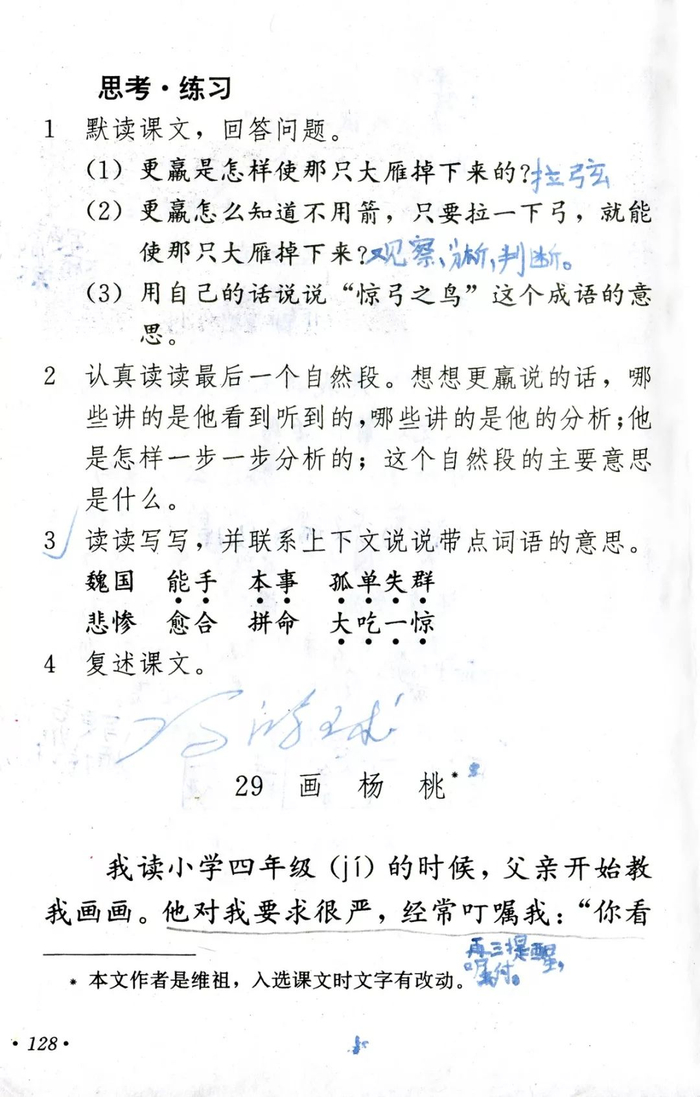 思考·练习
1 默读课文，回答问题。
(1) 更羸是怎样使那只大雁掉下来的?拉弓弦
(2) 更羸怎么知道不用箭，只要拉一下弓，就能
使那只大雁掉下来?观察,分析,判断。
(3) 用自己的话说说“惊弓之鸟”这个成语的意
思。
2 认真读读最后一个自然段。想想更羸说的话，哪
些讲的是他看到听到的,哪些讲的是他的分析;他
是怎样一步一步分析的；这个自然段的主要意思
是什么。
3 读读写写，并联系上下文说说带点词语的意思。
魏国 能手 本事 孤单失群
悲惨 愈合 拼命 大吃一惊
4 复述课文。
29 画 杨 桃*
我读小学四年级（jí）的时候，父亲开始教
我画画。他对我要求很严，经常叮嘱我：“你看
再三提醒,
嘱付。
* 本文作者是维祖，入选课文时文字有改动。
·128·